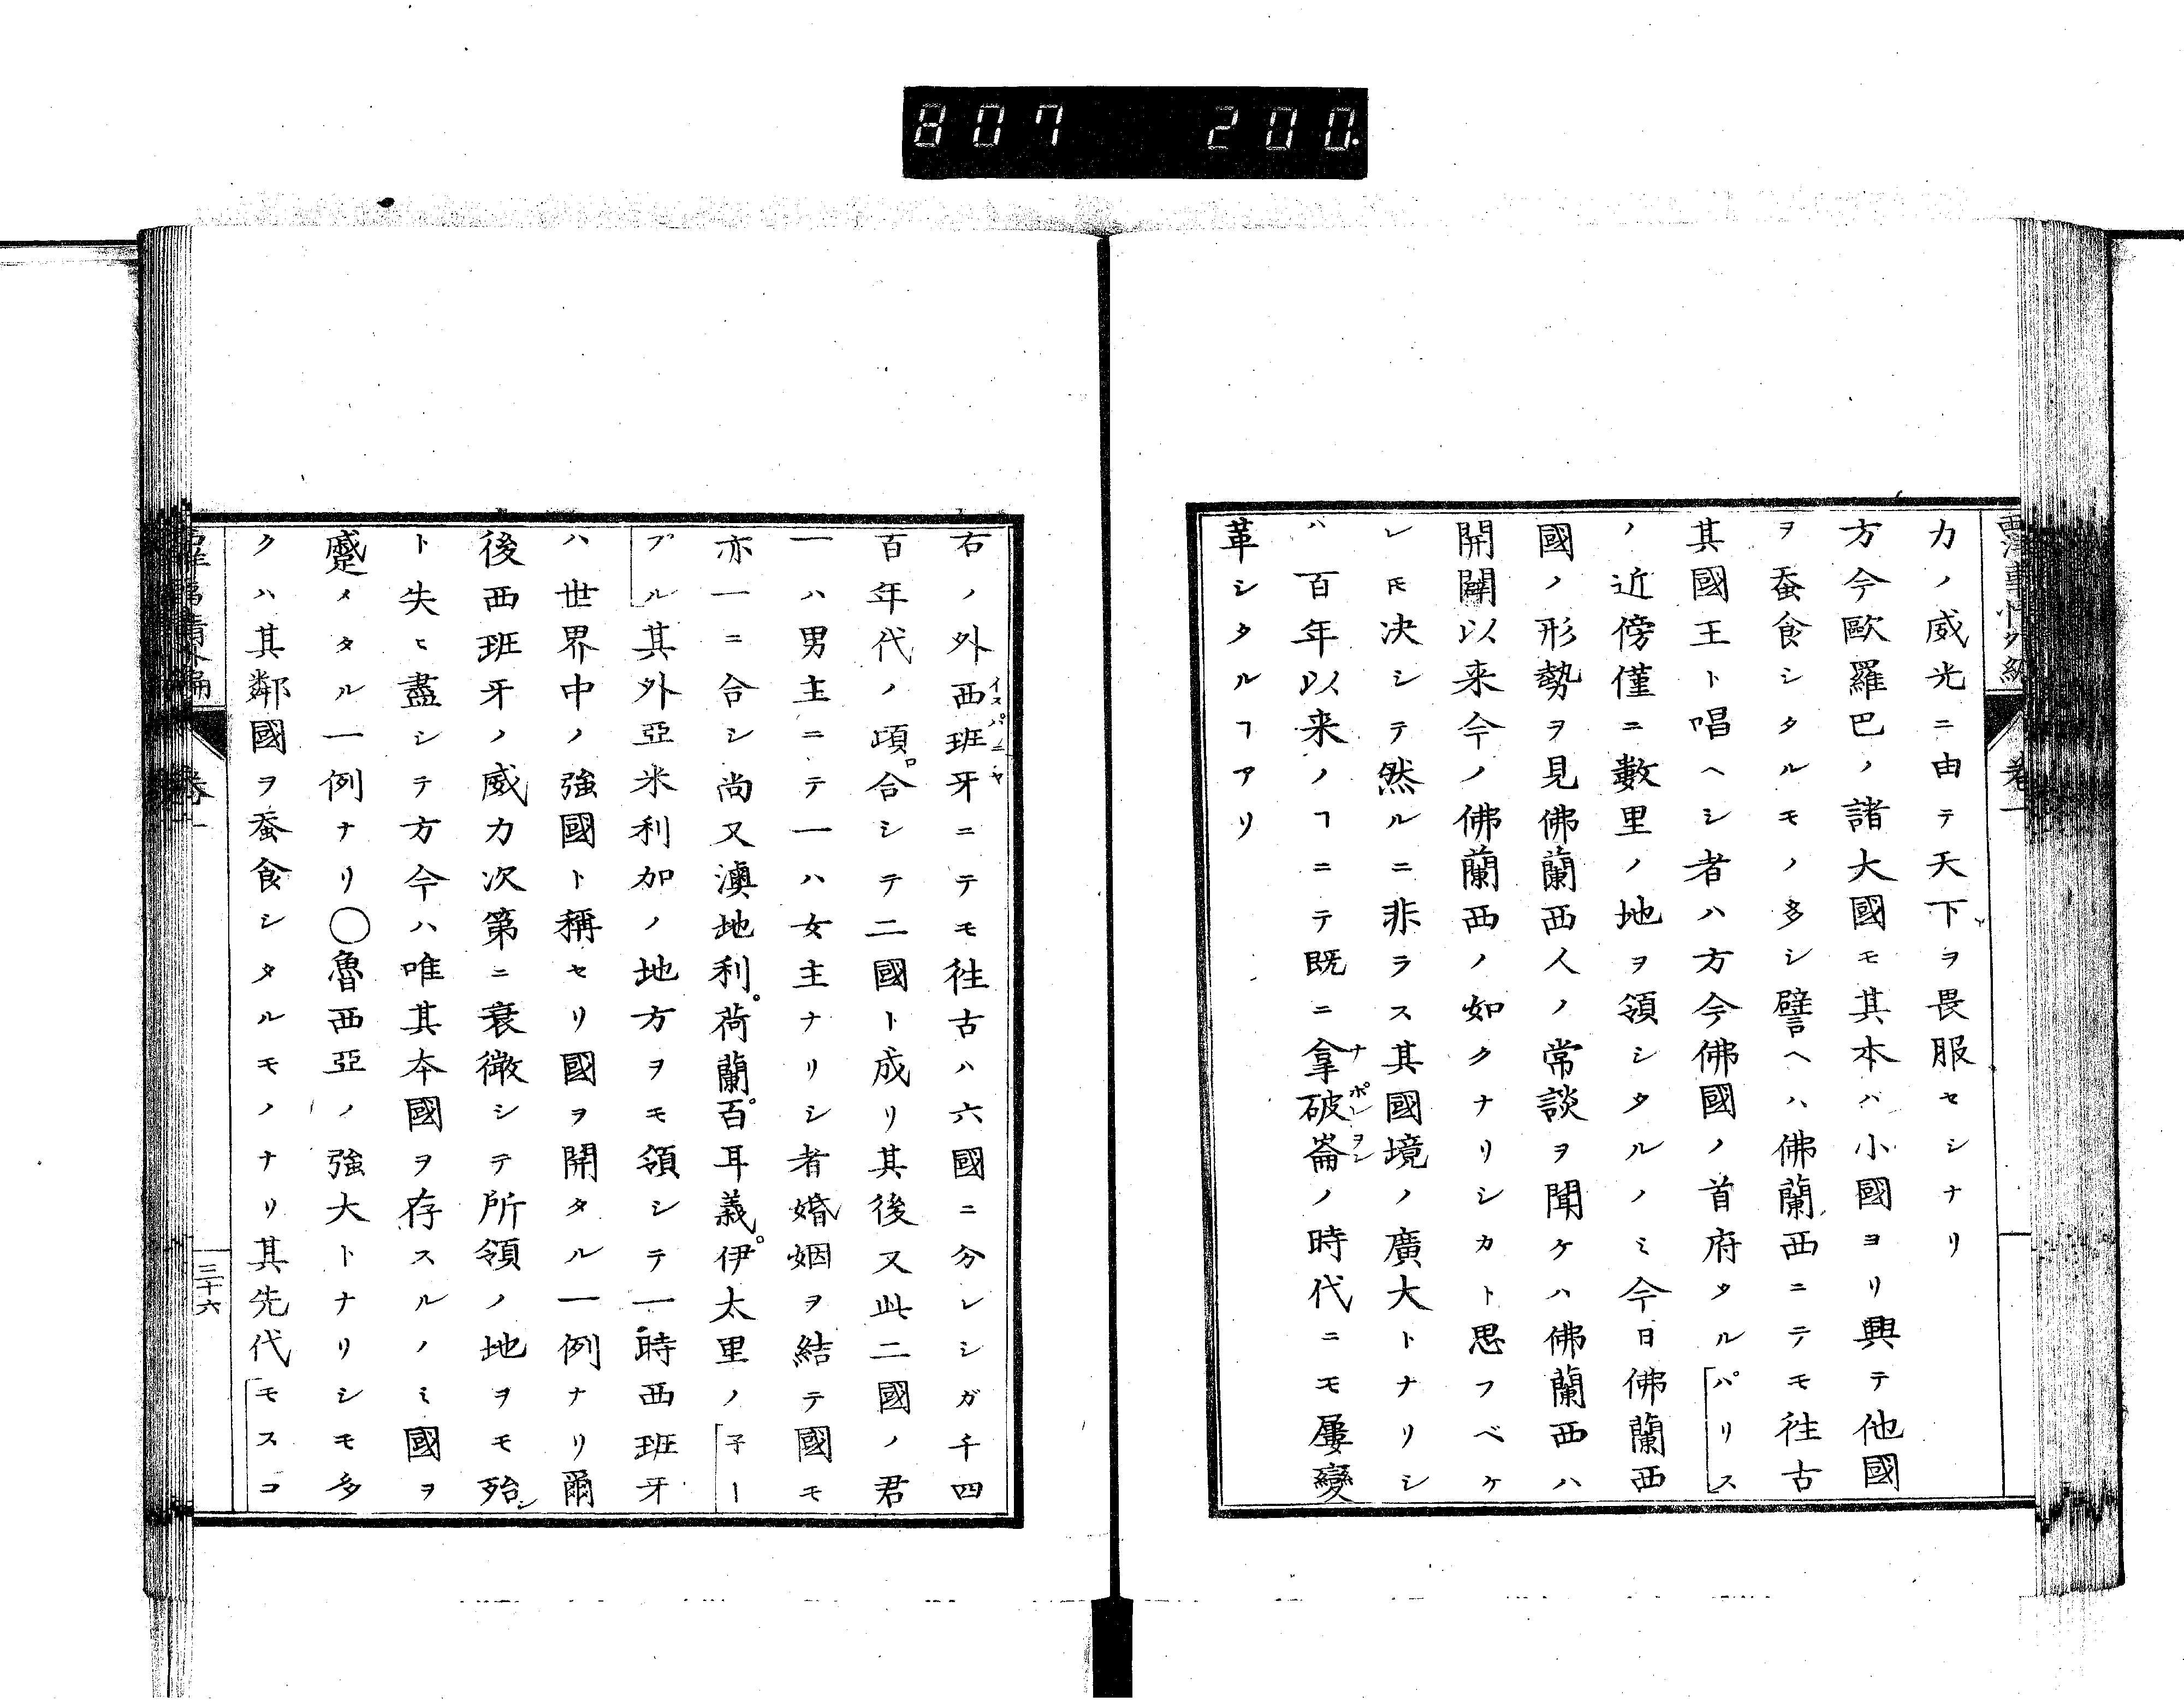 807 200.
西洋事情外編 卷一
力ノ威光ニ由テ天下ヲ畏服セシナリ
方今歐羅巴ノ諸大國モ其本ハ小國ヨリ興テ他國
ヲ蚕食シタルモノ多シ譬ヘハ佛蘭西ニテモ往古
其國王ト唱ヘシ者ハ方今佛國ノ首府タル「パリス
ノ近傍僅ニ數里ノ地ヲ領シタルノミ今日佛蘭西
國ノ形勢ヲ見佛蘭西人ノ常談ヲ聞ケハ佛蘭西ハ
開闢以来今ノ佛蘭西ノ如クナリシカト思フベケ
レ𪜈决シテ然ルニ非ラス其國境ノ廣大トナリシ
ハ百年以来ノヿニテ既ニ拿破崙ノ時代ニモ屢變
ナポレヲン
革シタルヿアリ
右ノ外西班牙ニテモ往古ハ六國ニ分レシガ千四
イスパニヤ
百年代ノ頃合シテ二國ト成リ其後又此二國ノ君
一ハ男主ニテ一ハ女主ナリシ者婚姻ヲ結テ國モ
亦一ニ合シ尚又澳地利。荷蘭。百耳義。伊太里ノ「子ー
プル其外亞米利加ノ地方ヲモ領シテ一時西班牙
ハ世界中ノ強國ト稱セリ國ヲ開タル一例ナリ爾
後西班牙ノ威力次第ニ衰微シテ所領ノ地ヲモ殆
ト失ヒ盡シテ方今ハ唯其本國ヲ存スルノミ國ヲ
蹙メタル一例ナリ〇魯西亞ノ強大トナリシモ多
クハ其鄰國ヲ蚕食シタルモノナリ其先代「モスコ
西洋事情外編 卷一 三十六